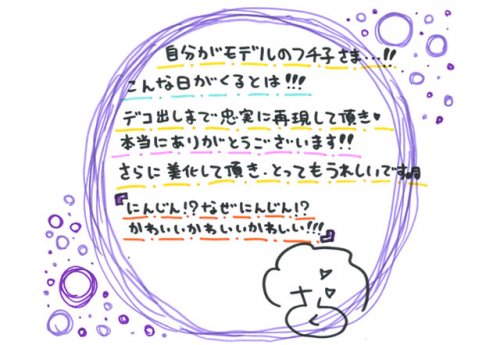 自分がモデルのフチ子さま…!!
こんな日がくるとは!!!
デコ出しまで忠実に再現して頂き♥
本当にありがとうございます!!
さらに美化して頂き、とってもうれしいです♫
『にんじん!?なぜにんじん!?
かわいいかわいいかわいい!!!』
さく